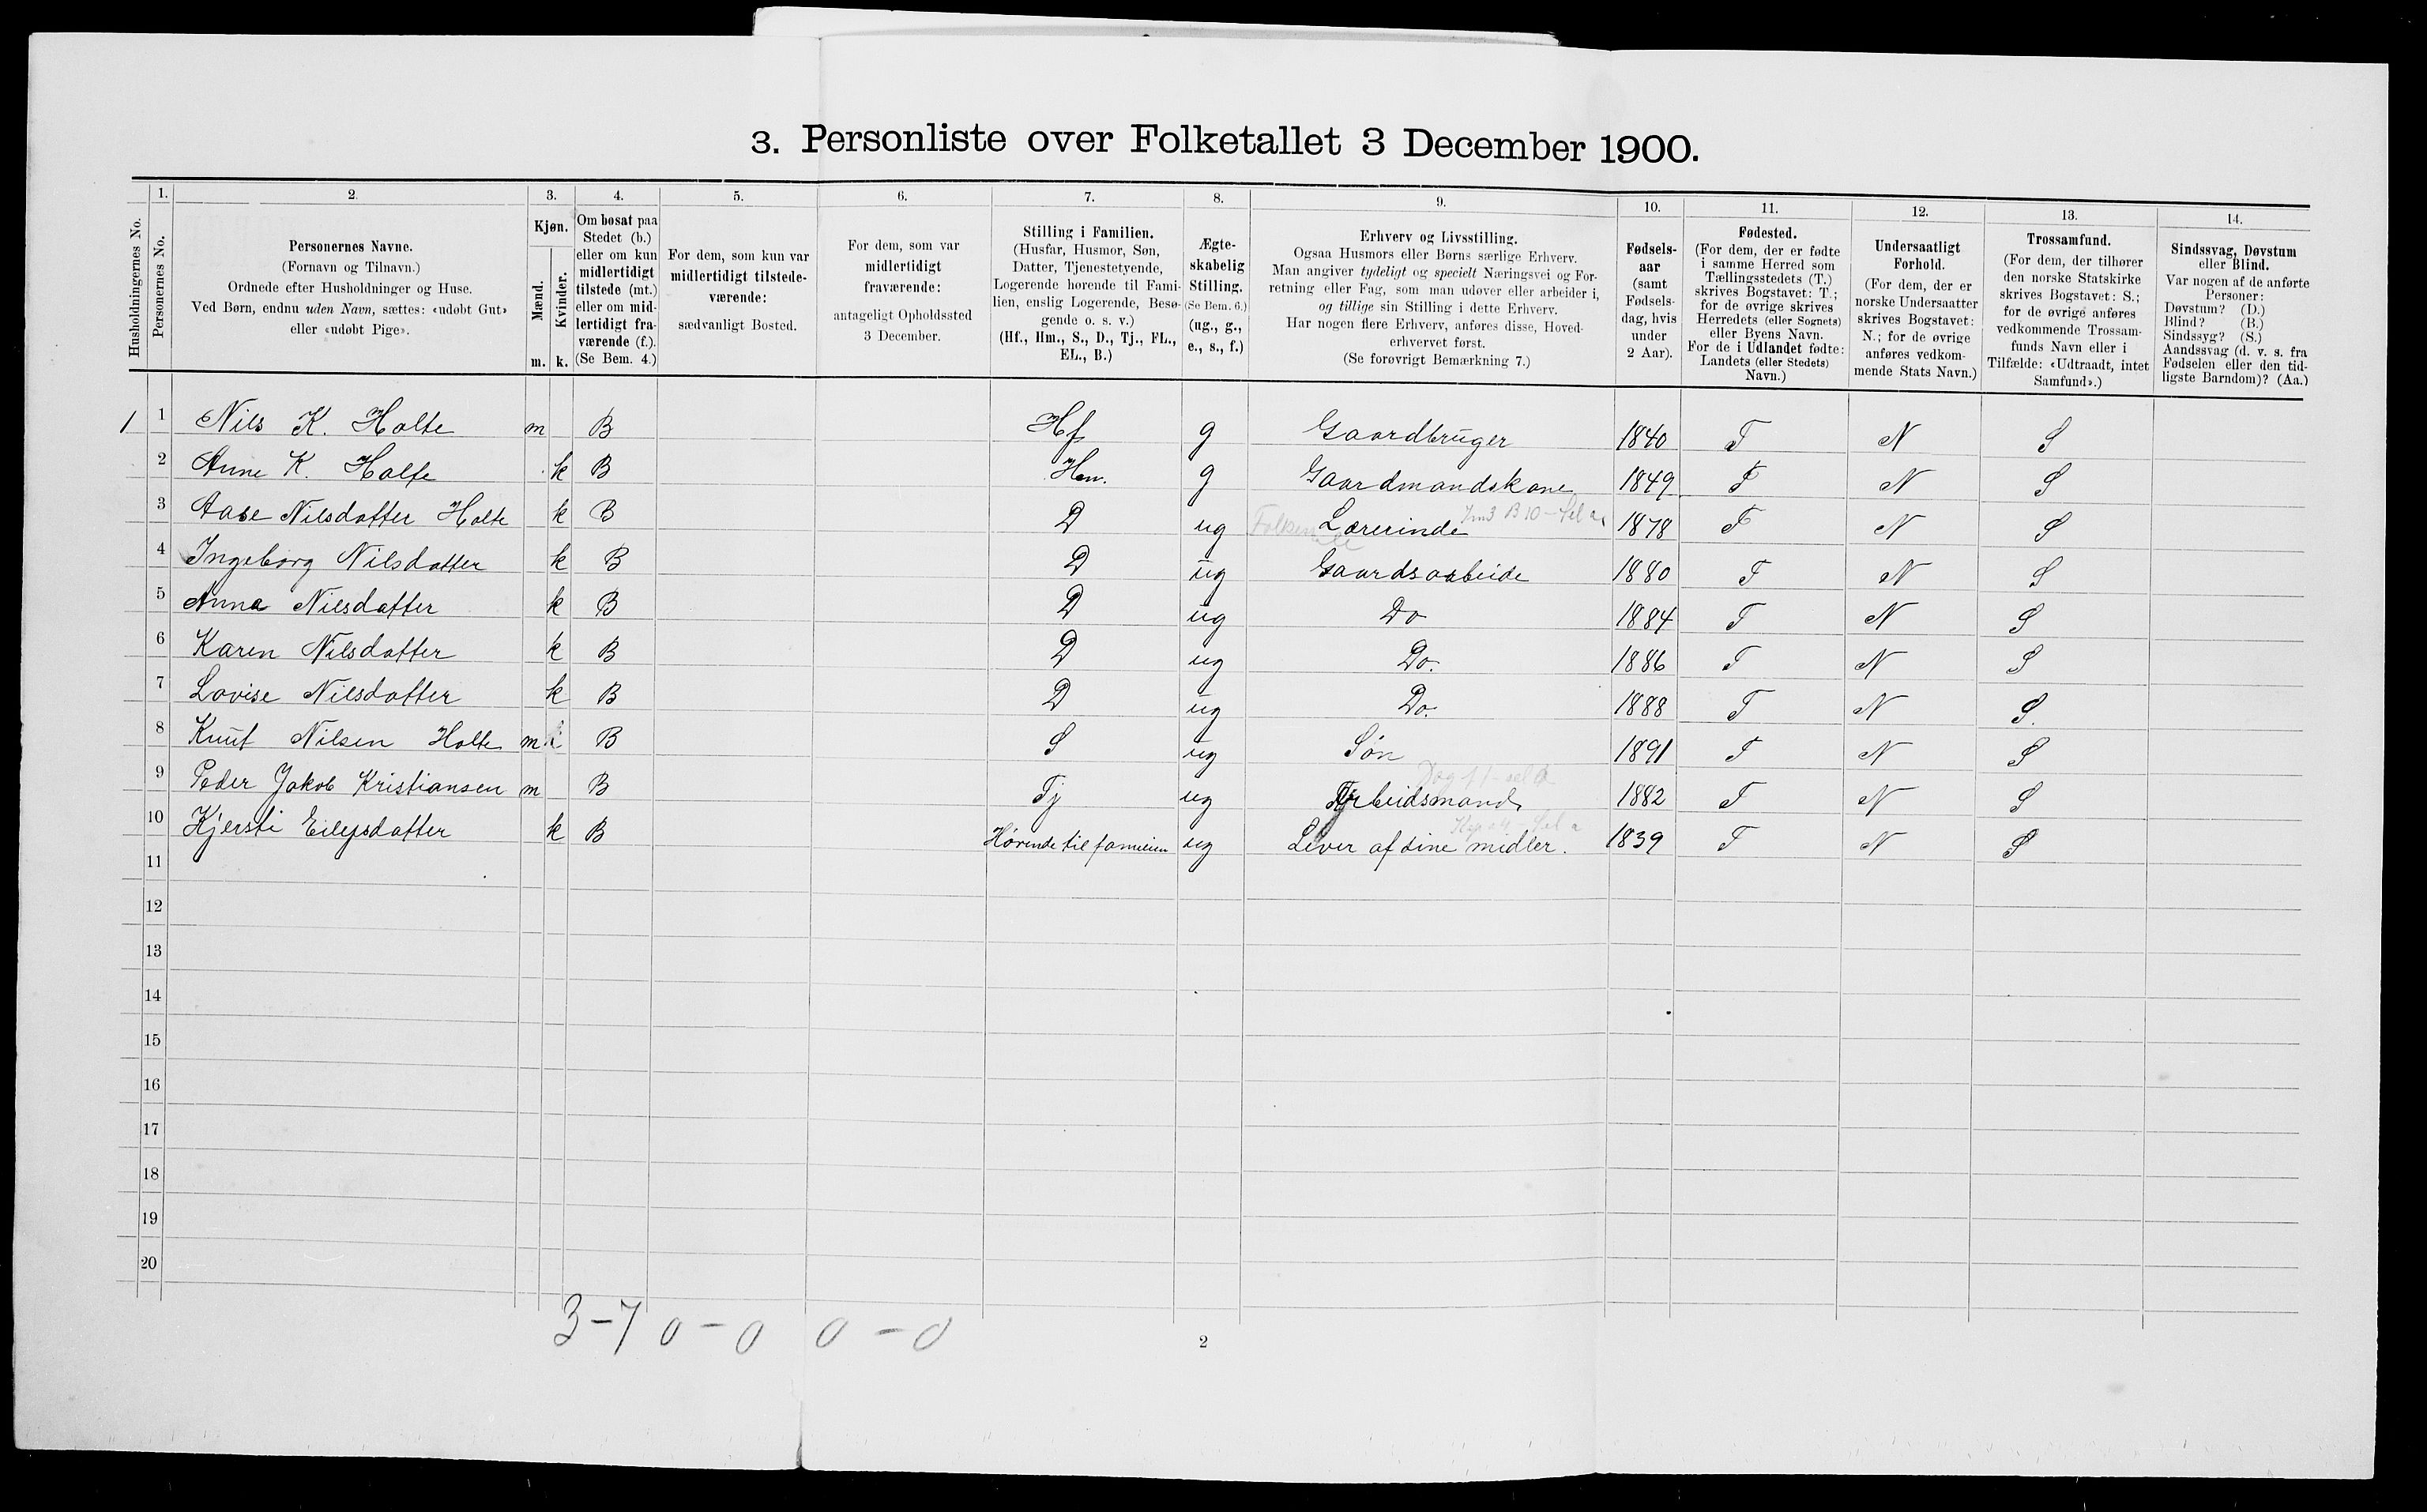 3. Personliste over Folketallet 3 December 1900.
Husholdningernes No.
1.
Personernes No.
2.
Personernes Navne.
(Fornavn og Tilnavn.)
Ordnede efter Husholdninger og Huse.
Ved Børn, endnu uden Navn, sættes: «udøbt Gut»
eller «udøbt Pige».
3.
Kjøn.
Mænd.
Kvinder.
m. k.
4.
Om bosat paa
Stedet (b.)
eller om kun
midlertidigt
tilstede (mt.)
eller om mid-
lertidigt fra-
værende (f.).
(Se Bem. 4.)
5.
For dem, som kun var
midlertidigt tilstede-
værende:
sædvanligt Bosted.
6.
For dem, som var
midlertidigt
fraværende:
antageligt Opholdssted
3 December.
7.
Stilling i Familien.
(Husfar, Husmor, Søn,
Datter, Tjenestetyende,
Logerende hørende til Fami-
lien, enslig Logerende, Besø-
gende o. s. v.)
(Hf., Hm., S., D., Tj., FL.,
EL., B.)
8.
Ægte-
skabelig
Stilling.
(Se Bem. 6.)
(ug., g.,
e., s., f.)
9.
Erhverv og Livsstilling.
Ogsaa Husmors eller Børns særlige Erhverv.
Man angiver tydeligt og specielt Næringsvei og For-
retning eller Fag, som man udøver eller arbeider i,
og tillige sin Stilling i dette Erhverv.
Har nogen flere Erhverv, anføres disse, Hoved-
erhvervet først.
(Se forøvrigt Bemærkning 7.)
10.
Fødsels-
aar
(samt
Fødsels-
dag, hvis
under
2 Aar).
11.
Fødested.
(For dem, der er fødte
i samme Herred som
Tællingsstedets (T.)
skrives Bogstavet: T.;
for de øvrige skrives
Herredets (eller Sognets)
eller Byens Navn.
For de i Udlandet fødte:
Landets (eller Stedets)
Navn.)
12.
Undersaatligt
Forhold.
(For dem, der er
norske Undersaatter
skrives Bogstavet:
N.; for de øvrige
anføres vedkom-
mende Stats Navn.)
13.
Trossamfund.
(For dem, der tilhører
den norske Statskirke
skrives Bogstavet: S.;
for de øvrige anføres
vedkommende Trossam-
funds Navn eller i
Tilfælde: «Udtraadt, intet
Samfund».)
14.
Sindssvag, Døvstum
eller Blind.
Var nogen af de anførte
Personer:
Døvstum? (D.)
Blind? (B.)
Sindssyg? (S.)
Aandssvag (d. v. s. fra
Fødselen eller den tid-
ligste Barndom)? (Aa.)
1 1 Nils K. Holte m B Hf g Gaardbruger 1840 T N S
2 Anne K. Holte k B Hm. g Gaardmandskone 1849 T N S
3 Aase Nilsdatter Holte k B D ug Lærerinde 1878 T N S
4 Ingeborg Nilsdatter k B D ug Gaardsarbeide 1880 T N S
5 Anna Nilsdatter k B D ug Do 1884 T N S
6 Karen Nilsdatter k B D ug Do. 1886 T N S
7 Lovise Nilsdatter k B D ug Do. 1888 T N S.
8 Knut Nilsen Holte m B S ug Søn 1891 T N S
9 Peder Jakob Kristiansen m B Tj ug Arbeidsmand 1882 T N S
10 Kjersti Eilefsdatter k B Hørende til familien ug Lever af sine midler. 1839 T N S
11
12
13
14
15
16
17
18
19
20
3-7 0-0 0-0
2